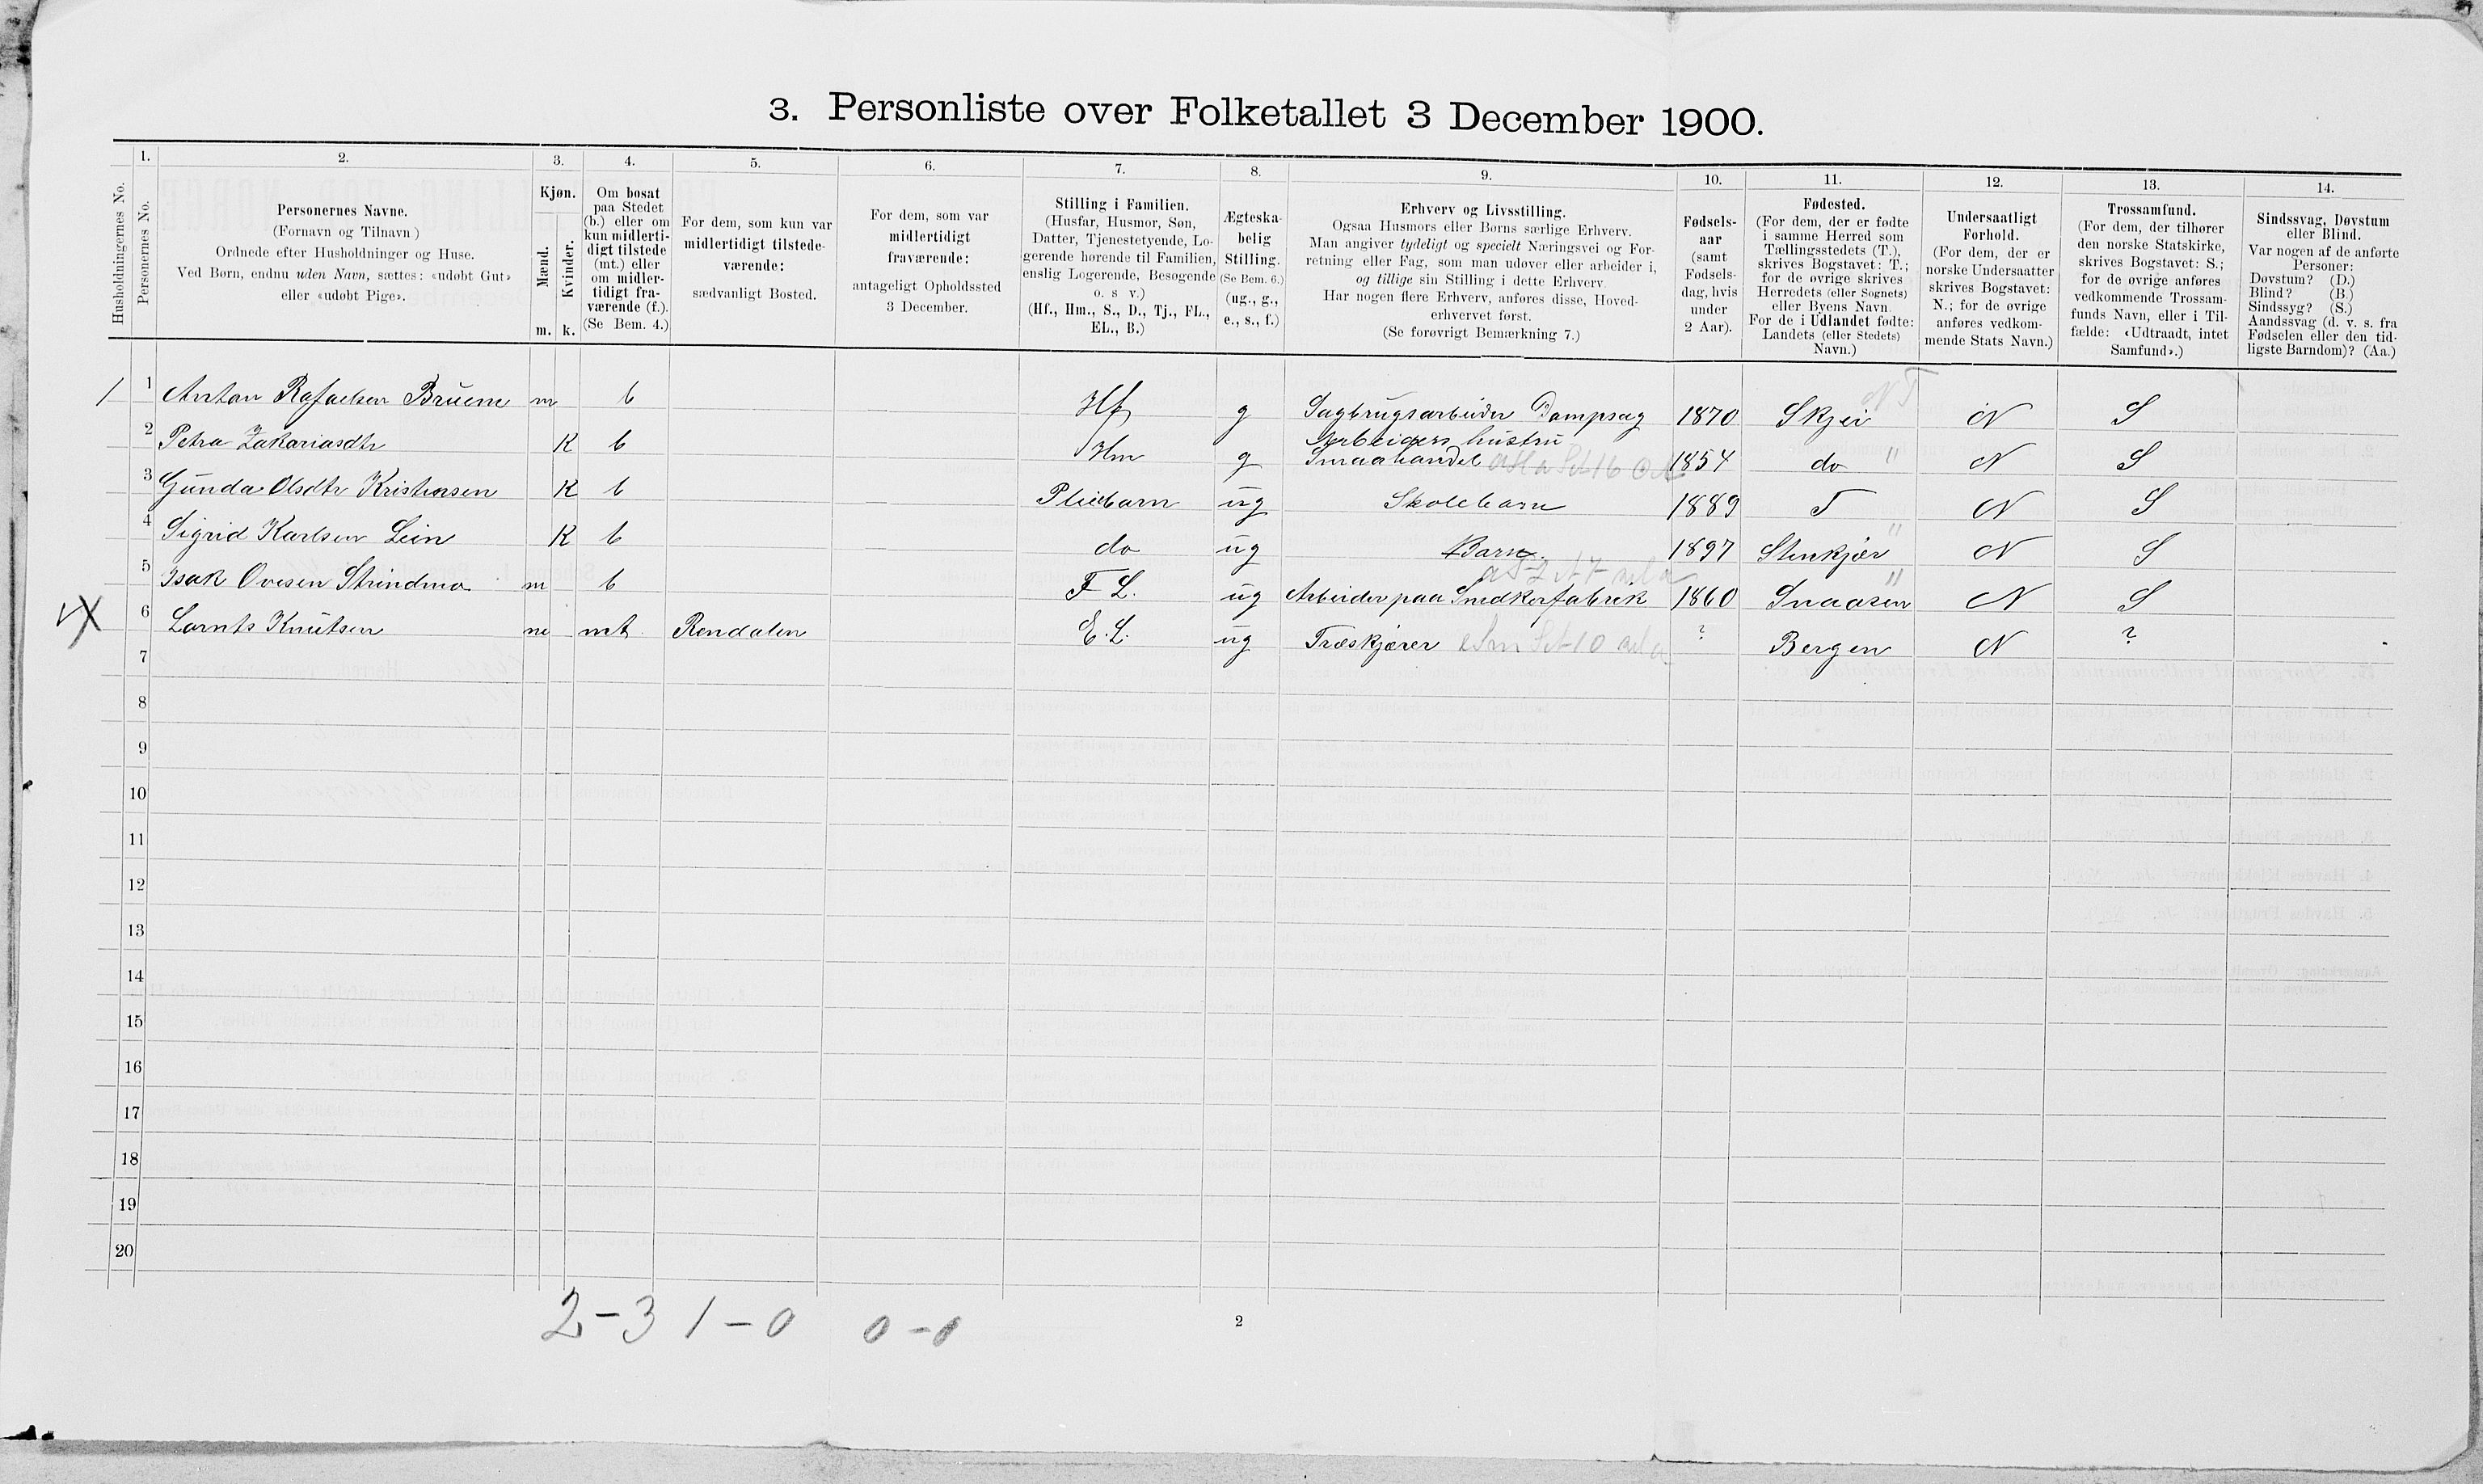 3. Personliste over Folketallet 3 December 1900.
Husholdningernes No.
1.
Personernes No.
2.
Personernes Navne.
(Fornavn og Tilnavn)
Ordnede efter Husholdninger og Huse.
Ved Børn, endnu uden Navn, sættes: «udøbt Gut»
eller «udøbt Pige».
3.
Kjøn.
Mænd.
Kvinder.
m. k.
4.
Om bosat
paa Stedet
(b.) eller om
kun midlerti-
digt tilstede
(mt.) eller
om midler-
tidigt fra-
værende (f.).
(Se Bem. 4.)
5.
For dem, som kun var
midlertidigt tilstede-
værende:
sædvanligt Bosted.
6.
For dem, som var
midlertidigt
fraværende:
antageligt Opholdssted
3 December.
7.
Stilling i Familien.
(Husfar, Husmor, Søn,
Datter, Tjenestetyende, Lo-
gerende hørende til Familien,
enslig Logerende, Besøgende
o. s v.)
(Hf., Hm., S., D., Tj., FL.,
EL., B.)
8.
Ægteska-
belig
Stilling.
(Se Bem. 6.)
(ug., g.,
e., s., f.)
9.
Erhverv og Livsstilling.
Ogsaa Husmors eller Børns særlige Erhverv.
Man angiver tydeligt og specielt Næringsvei og For-
retning eller Fag, som man udøver eller arbeider i,
og tillige sin Stilling i dette Erhverv.
Har nogen flere Erhverv, anføres disse, Hoved-
erhvervet først.
(Se forøvrigt Bemærkning 7.)
10.
Fødsels-
aar
(samt
Fødsels-
dag, hvis
under
2 Aar).
11.
Fødested.
(For dem, der er fødte
i samme Herred som
Tællingsstedets (T.),
skrives Bogstavet: T.;
for de øvrige skrives
Herredets (eller Sognets)
eller Byens Navn.
For de i Udlandet fødte:
Landets (eller Stedets)
Navn.)
12.
Undersaatligt
Forhold.
(For dem, der er
norske Undersaatter
skrives Bogstavet:
N.; for de øvrige
anføres vedkom-
mende Stats Navn.)
13.
Trossamfund.
(For dem, der tilhører
den norske Statskirke,
skrives Bogstavet: S.;
for de øvrige anføres
vedkommende Trossam-
funds Navn, eller i Til-
fælde: «Udtraadt, intet
Samfund».)
14.
Sindssvag, Døvstum
eller Blind.
Var nogen af de anførte
Personer:
Døvstum? (D.)
Blind? (B.)
Sindssyg? (S.)
Aandssvag (d. v. s. fra
Fødselen eller den tid-
ligste Barndom)? (Aa.)
/ 1 Anton Rafaelsen Bruem m b Hf g Sagbrugsarbeider Dampsag 1870 Skjei NT N S
2 Petra Zakariasdtr K b Hm g Arbeiders hustru
Smaahandel 1854 do " N S
3 Gunda Olsdtr Kristensen K b Pleiebarn ug Skolebarn 1889 T N S
4 Sigrid Karlsen Lein K b do ug Barn. 1897 Stenkjær " N S
5 Isak Ovesen Strindmo m b F L. ug Arbeider paa Snedkerfabrik 1860 Snaasen " N S
X 6 Lornts Knutsen m mt Rendalen E. L. ug Træskjærer ? Bergen N ?
7
8
9
10
11
12
13
14
15
16
17
18
19
20
2-3 1-0 0-0
2